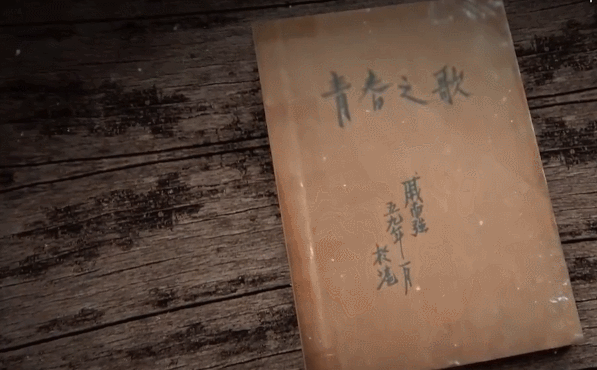 青春之歌
戚 强
五九年一月
於